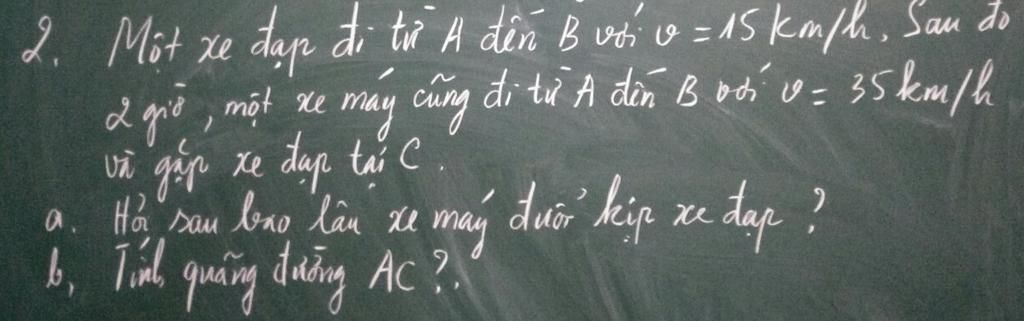 2. Một xe đạp đi từ A đến B với v = 15 km/h. Sau đó
2 giờ, một xe máy cũng đi từ A đến B với v = 35 km/h
và gặp xe đạp tại C.
a. Hỏi sau bao lâu xe máy đuổi kịp xe đạp?
b, Tính quãng đường AC?.